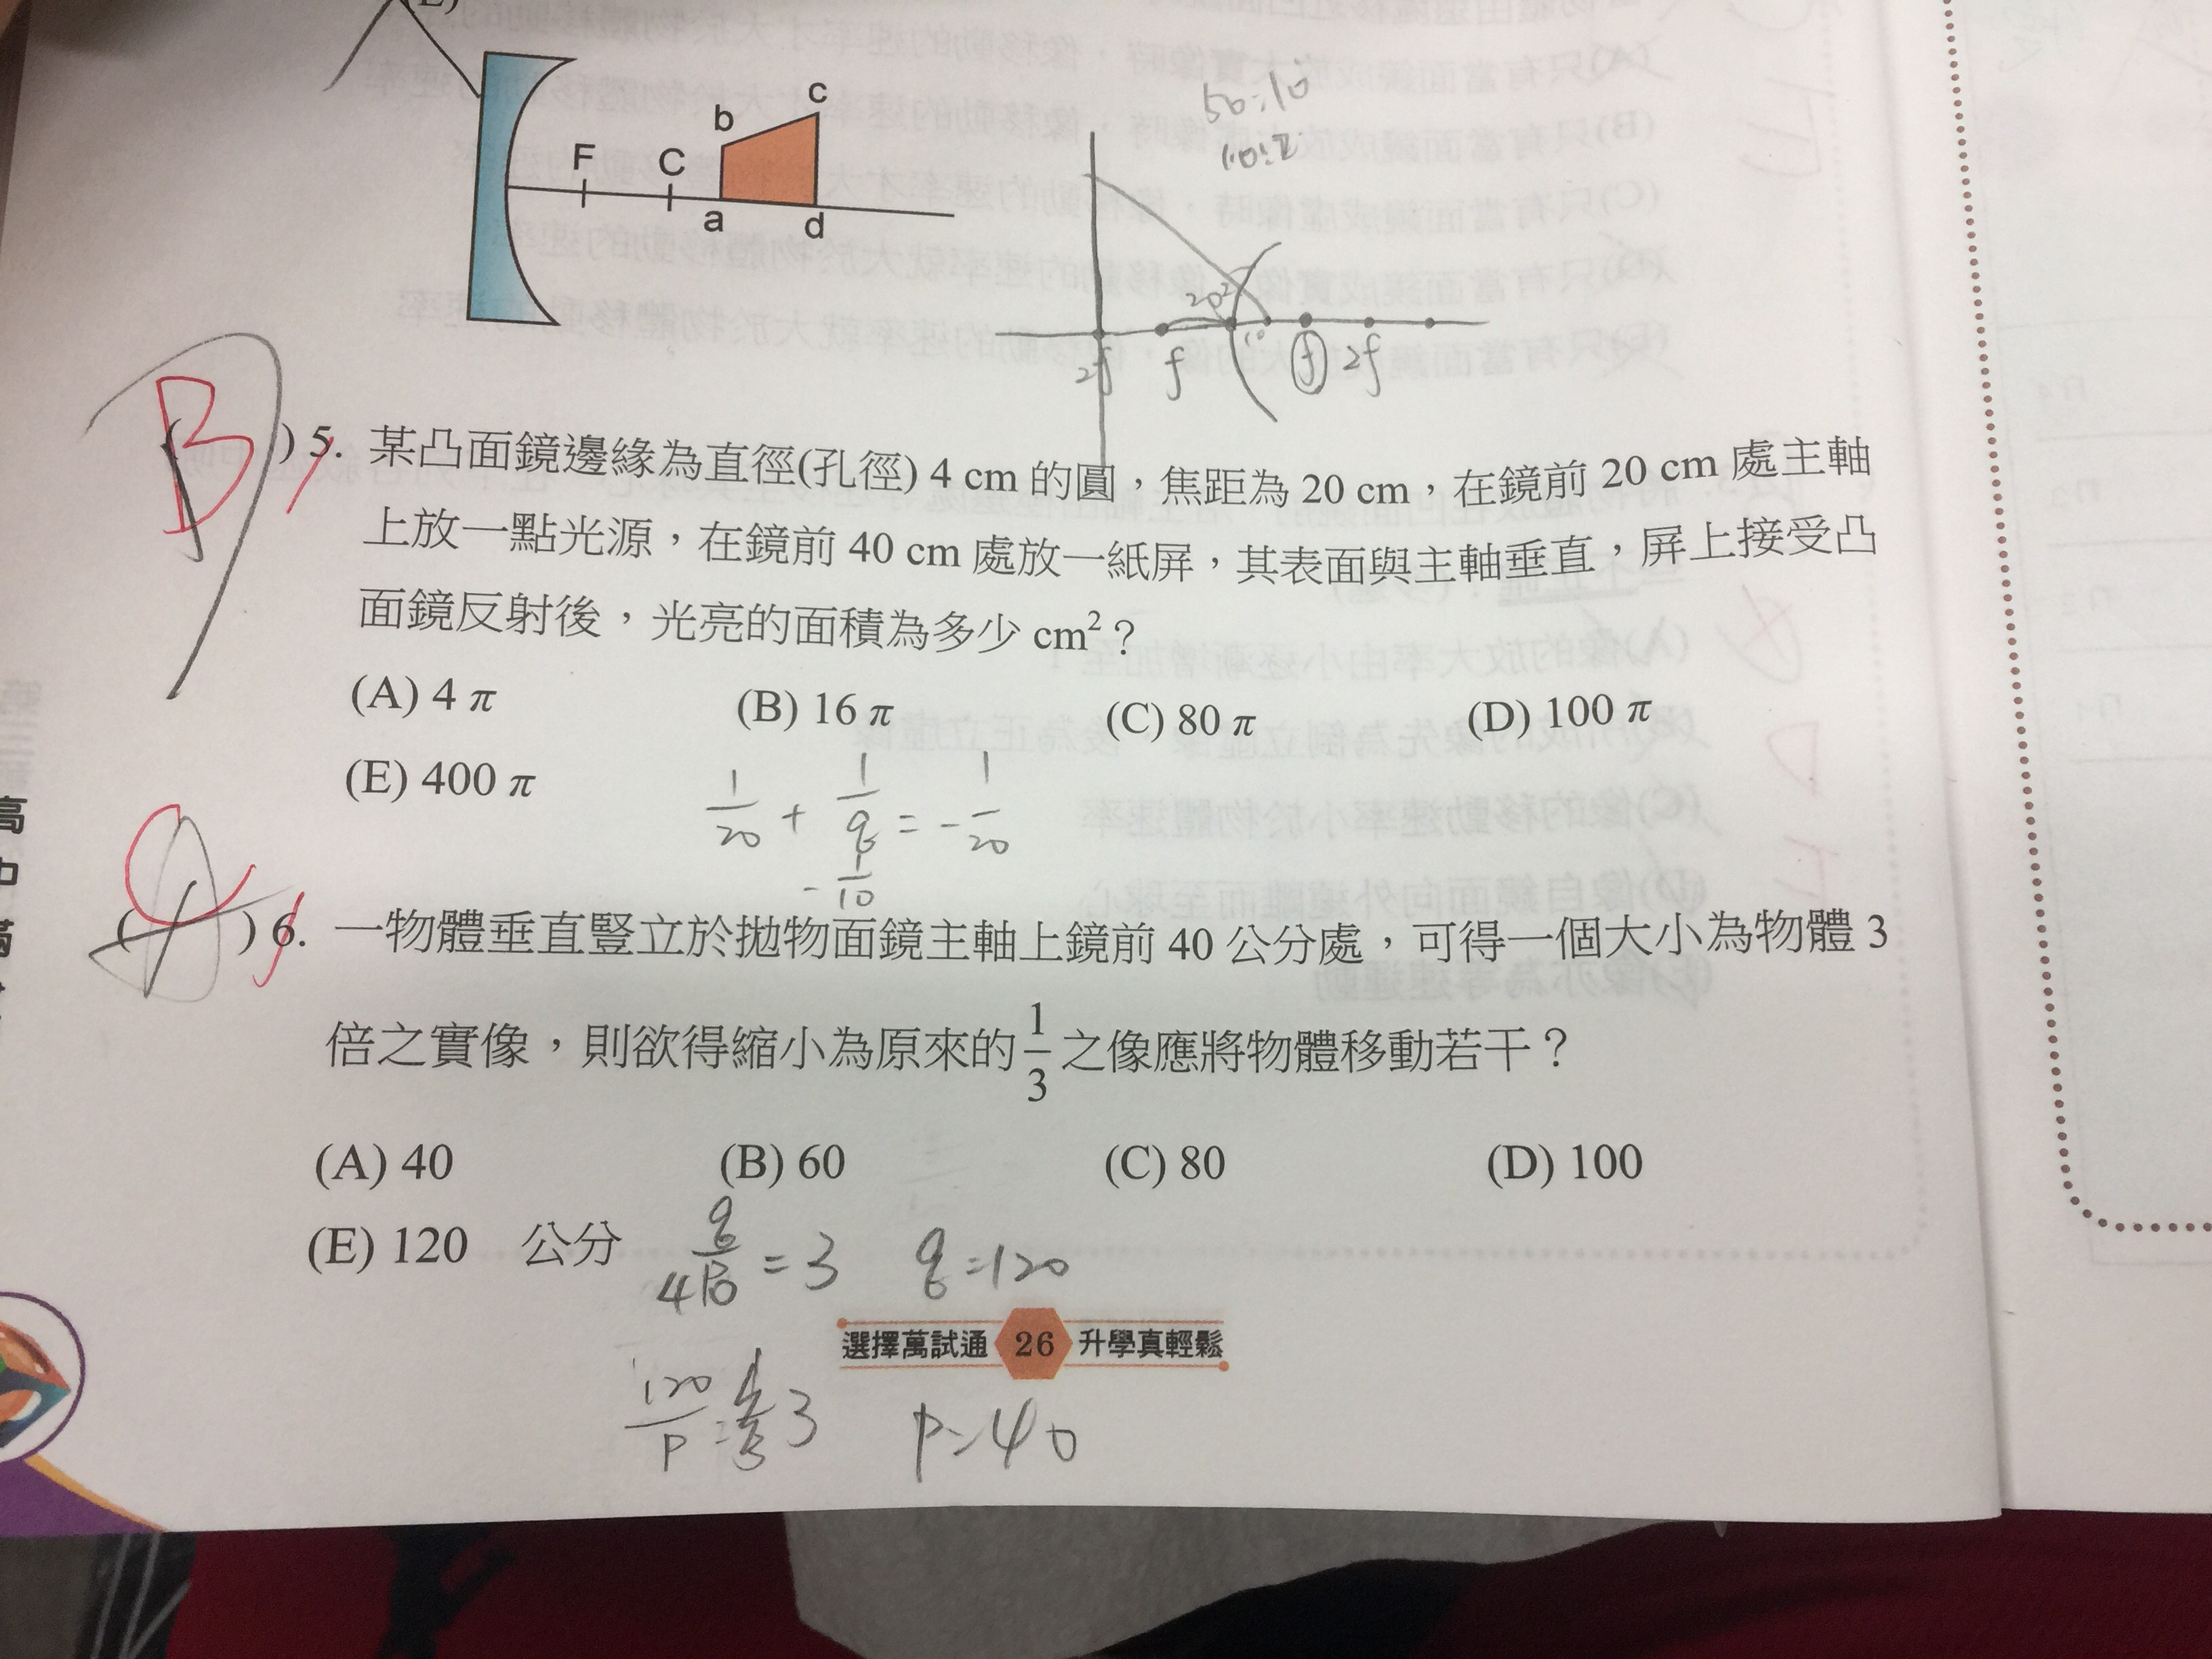 b
c
F
C
a
d
50:10
10:2
20
10
2f
f
f
2f
B
( ) 5. 某凸面鏡邊緣為直徑(孔徑) 4 cm 的圓，焦距為 20 cm，在鏡前 20 cm 處主軸
上放一點光源，在鏡前 40 cm 處放一紙屏，其表面與主軸垂直，屏上接受凸
面鏡反射後，光亮的面積為多少 cm²？
(A) 4 π (B) 16 π (C) 80 π (D) 100 π
(E) 400 π
1/20 + 1/q = -1/20
-1/10
( ) 6. 一物體垂直豎立於拋物面鏡主軸上鏡前 40 公分處，可得一個大小為物體 3
倍之實像，則欲得縮小為原來的 1/3 之像應將物體移動若干？
(A) 40 (B) 60 (C) 80 (D) 100
(E) 120 公分
q/40 = 3 q=120
選擇萬試通 26 升學真輕鬆
120/P = 3 P=40
高
中